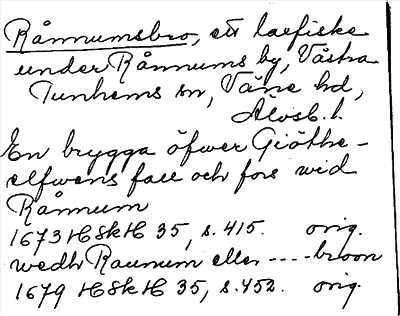 Rånnumsbro, ett laxfiske
under Rånnums by, Västra
Tunhems sn, Väne hd,
Älvsb. l.
En brygga öfwer Giöthe-
elfwens fall och fors wid
Rånnum
1673 HSkH 35, s. 415. orig.
wedh Raunum eller ---- broon
1679 HSkH 35, s. 452. orig.